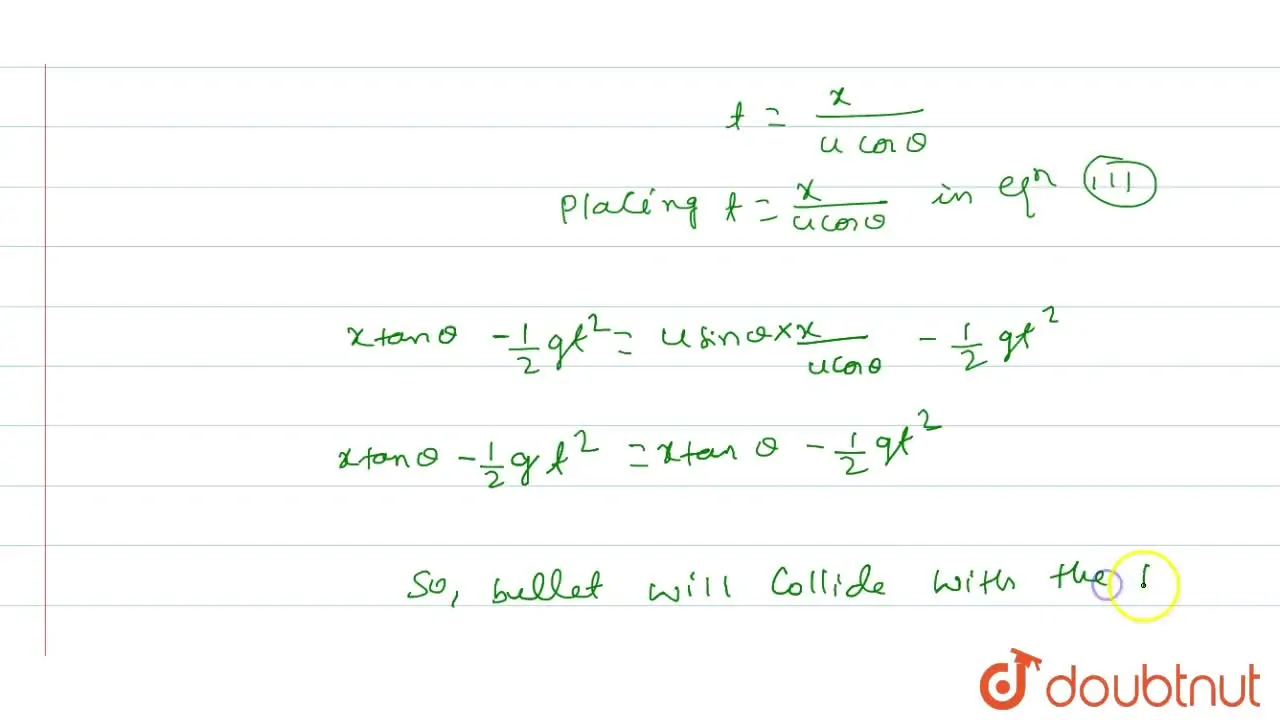 t = x / u cos θ
Placing t = x / u cos θ in eqn (iii)
x tan θ - 1/2 gt² = u sin θ × x / u cos θ - 1/2 gt²
x tan θ - 1/2 gt² = x tan θ - 1/2 gt²
So, bullet will collide with the
doubtnut